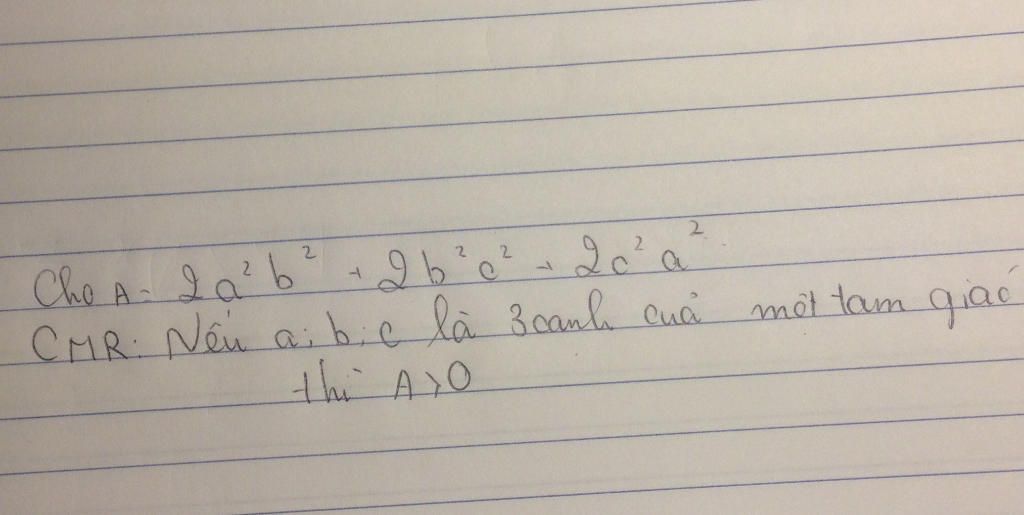 Cho A = 2a² b² + 2b² c² + 2c² a²
CMR: Nếu a; b; c là 3 canh cuả một tam giác
thì A > 0